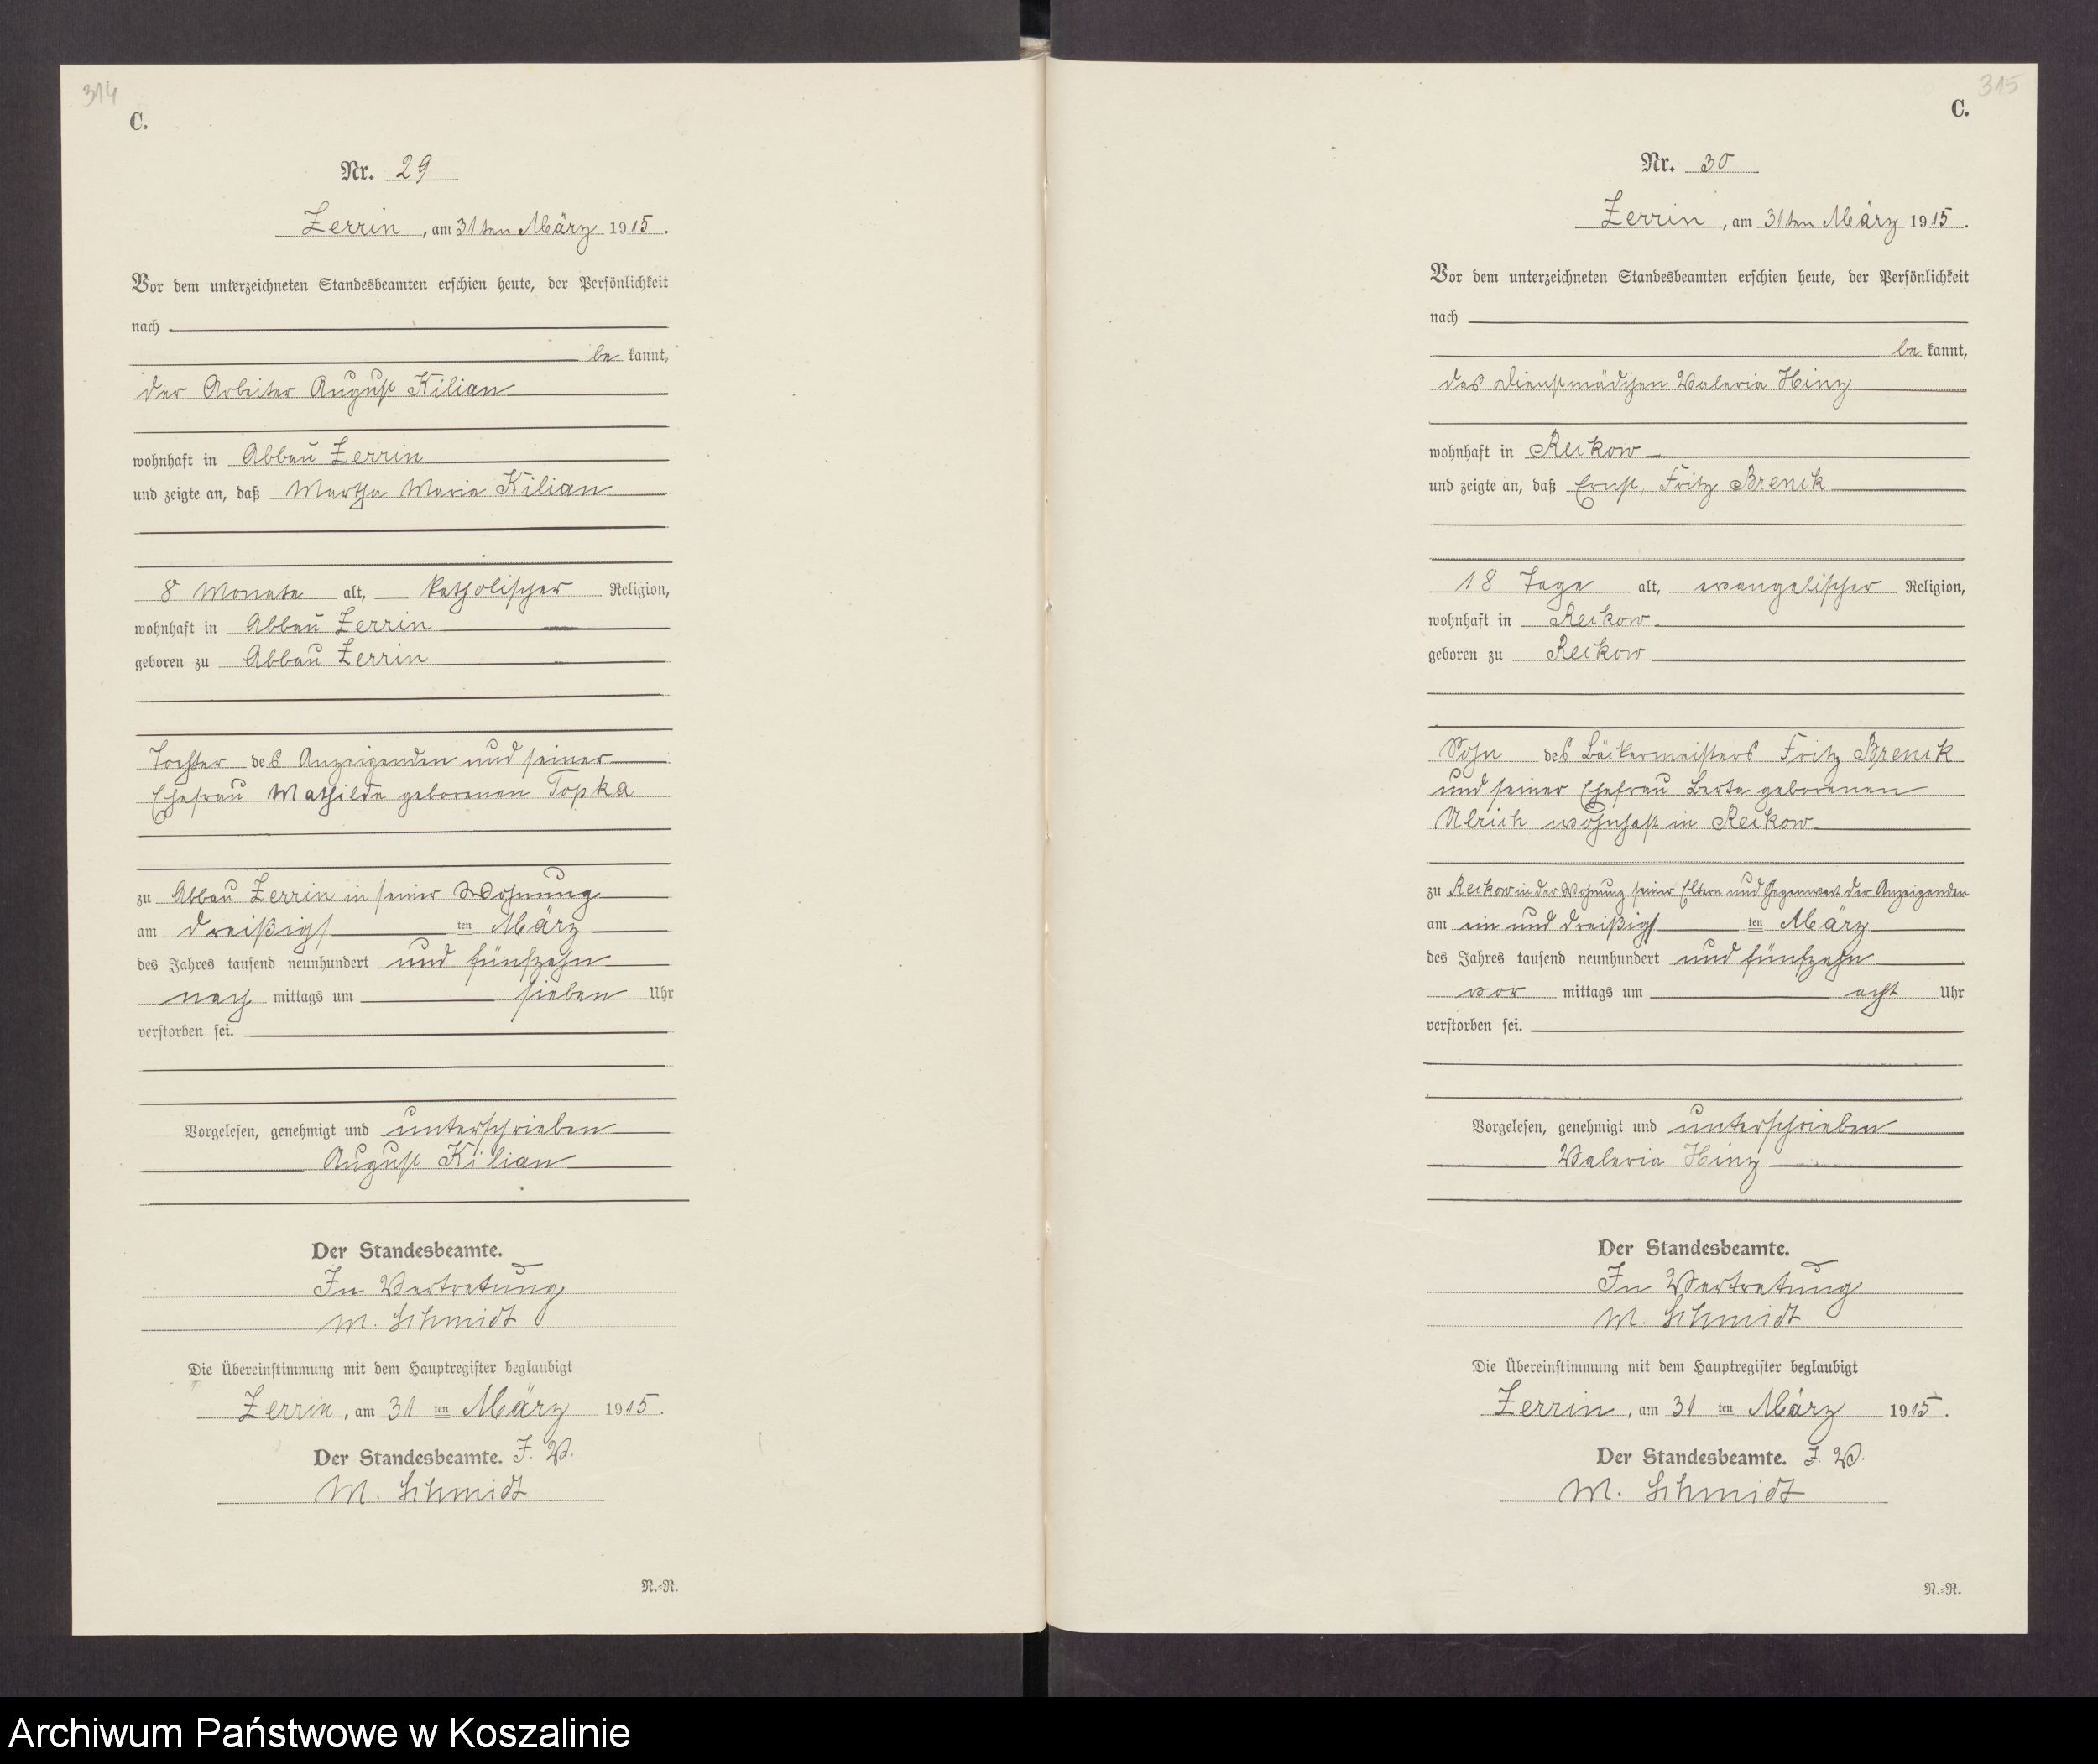 314
C.
Nr. 29
Zerrin, am 31ten März 1915.
Vor dem unterzeichneten Standesbeamten erschien heute, der Persönlichkeit
nach
be kannt,
der Arbeiter August Kilian
wohnhaft in Abbau Zerrin
und zeigte an, daß Martha Maria Kilian
8 Monate alt, katholischer Religion,
wohnhaft in Abbau Zerrin
geboren zu Abbau Zerrin
Tochter des Anzeigenden und seiner
Ehefrau Mathilde geborenen Topka
zu Abbau Zerrin in seiner Wohnung
am dreißigs ten März
des Jahres tausend neunhundert und fünfzehn
nach mittags um sieben Uhr
verstorben sei.
Vorgelesen, genehmigt und unterschrieben
August Kilian
Der Standesbeamte.
In Vertretung
M. Schmidt
Die Übereinstimmung mit dem Hauptregister beglaubigt
Zerrin, am 31 ten März 1915.
Der Standesbeamte. I. V.
M. Schmidt
N.-R.
315
C.
Nr. 30
Zerrin, am 31ten März 1915.
Vor dem unterzeichneten Standesbeamten erschien heute, der Persönlichkeit
nach
be kannt,
das Dienstmädchen Valeria Hinz
wohnhaft in Reckow
und zeigte an, daß Ernst Fritz Brenck
18 Tage alt, evangelischer Religion,
wohnhaft in Reckow
geboren zu Reckow
Sohn des Bäckermeisters Fritz Brenck
und seiner Ehefrau Berta geborenen
Ulrich wohnhaft in Reckow
zu Reckow in der Wohnung seiner Eltern und Gegenwart der Anzeigenden
am ein und dreißigs ten März
des Jahres tausend neunhundert und fünfzehn
vor mittags um acht Uhr
verstorben sei.
Vorgelesen, genehmigt und unterschrieben
Valeria Hinz
Der Standesbeamte.
In Vertretung
M. Schmidt
Die Übereinstimmung mit dem Hauptregister beglaubigt
Zerrin, am 31 ten März 1915.
Der Standesbeamte. I. V.
M. Schmidt
N.-R.
Archiwum Państwowe w Koszalinie